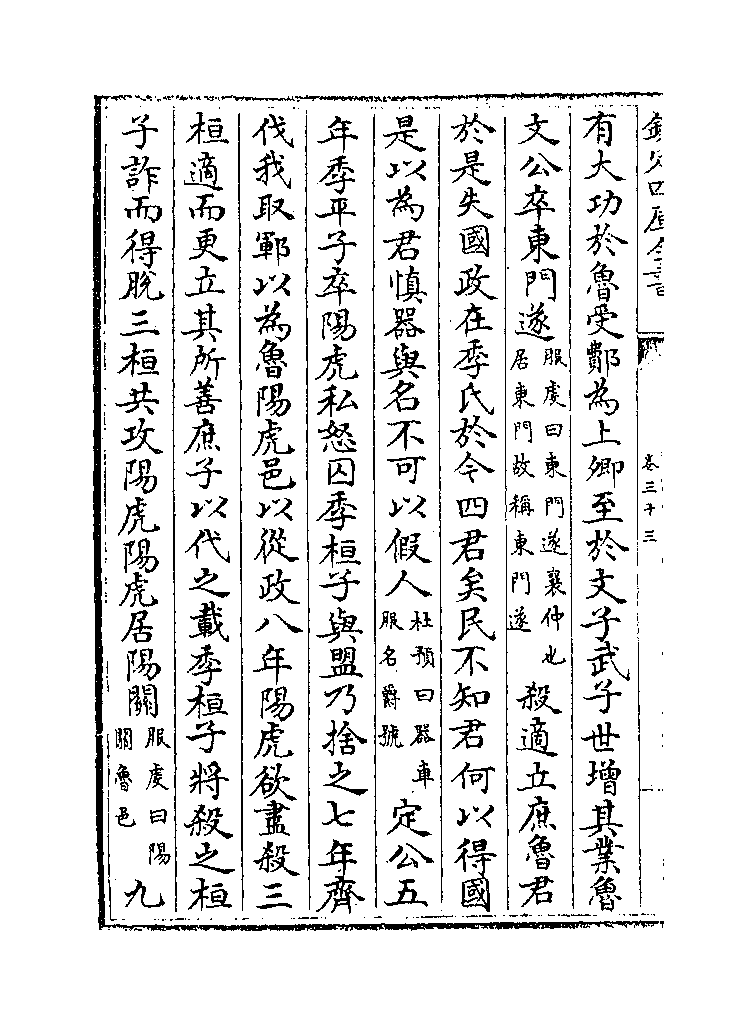 欽定四庫全書
卷三十三
有大功於魯受鄪為上卿至於文子武子世增其業魯
文公卒東門遂服虔曰東門遂襄仲也居東門故稱東門遂殺適立庶魯君
於是失國政在季氏於今四君矣民不知君何以得國
是以為君慎器與名不可以假人杜預曰器車服名爵號定公五
年季平子卒陽虎私怒囚季桓子與盟乃捨之七年齊
伐我取鄆以為魯陽虎邑以從政八年陽虎欲盡殺三
桓適而更立其所善庶子以代之載季桓子將殺之桓
子詐而得脫三桓共攻陽虎陽虎居陽關服虔曰陽關魯邑九